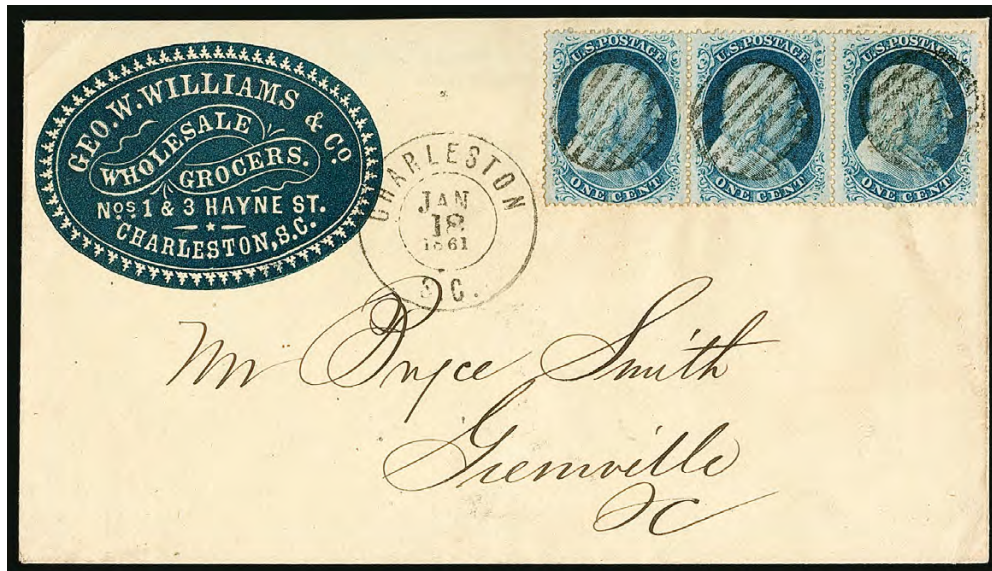 GEO. W. WILLIAMS & Co
WHOLESALE
GROCERS.
Nos 1 & 3 HAYNE ST.
CHARLESTON, S.C.
CHARLESTON
JAN
18
1861
S C.
U.S. POSTAGE
ONE CENT
U.S. POSTAGE
ONE CENT
U.S. POSTAGE
ONE CENT
Mr Pryce Smith
Greenville
SC